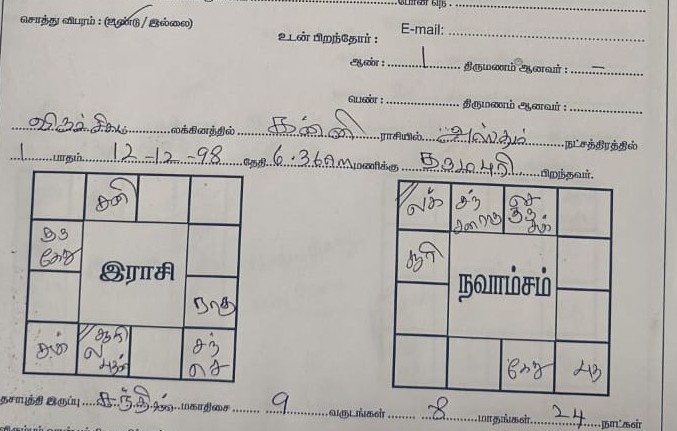 போன் நெ. :
சொத்து விபரம் : (உண்டு / இல்லை)
E-mail:
உடன் பிறந்தோர் :
ஆண் : 1 திருமணம் ஆனவர் : –
பெண் : திருமணம் ஆனவர் :
விருச்சிகம் லக்கினத்தில் கன்னி ராசியில் அஸ்தம் நட்சத்திரத்தில்
1 பாதம் 12-12-98 தேதி 6.36 AM மணிக்கு தருமபுரி பிறந்தவர்.
சனி
குரு
கேது
இராசி
ராகு
சுக்
சூரி
ல
புதன்
சந்
செ
லக்
சந்
சனி ராகு
செ
குரு
சுக்
சூரி
நவாம்சம்
கேது
புத
தசாபுத்தி இருப்பு சந்திரன் மகாதிசை 9 வருடங்கள் 8 மாதங்கள் 24 நாட்கள்